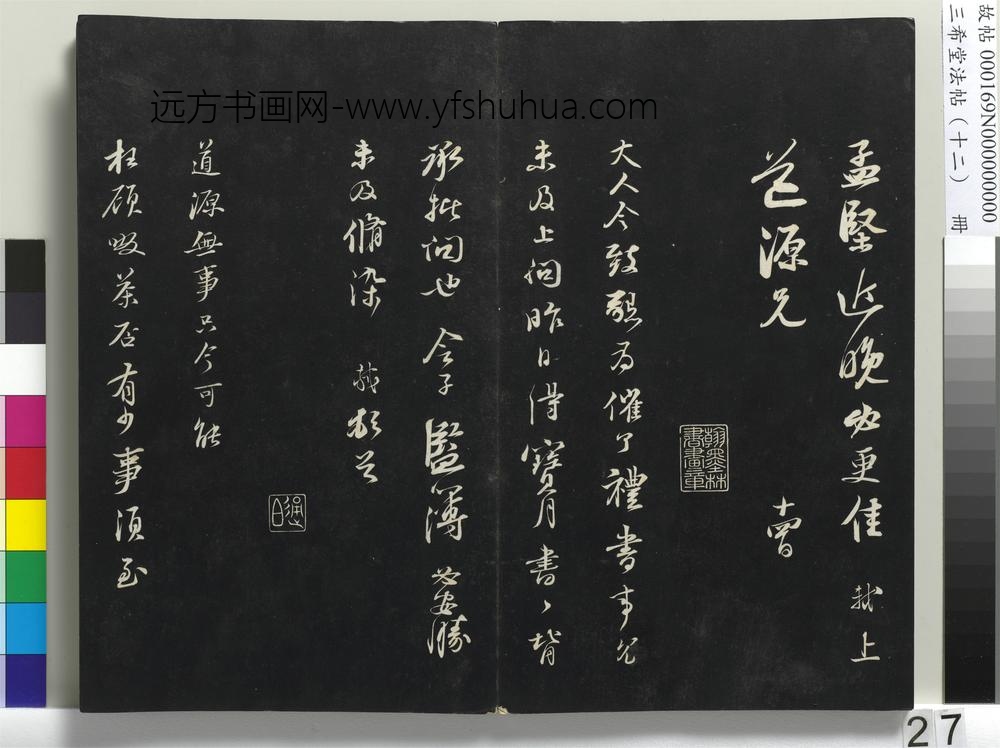 故帖 000169N000000000
三希堂法帖（十二） 冊
远方书画网-www.yfshuhua.com
孟堅近晚必更佳 軾上
道源兄 十四日
翰墨林
書畫章
大人令致懇為催了禮書事冗
未及上問昨日得寶月書〻背
承批問也 令子監簿必安勝
未及脩染 軾頓首
道源無事只今可能
枉顧啜茶否有少事須至
27